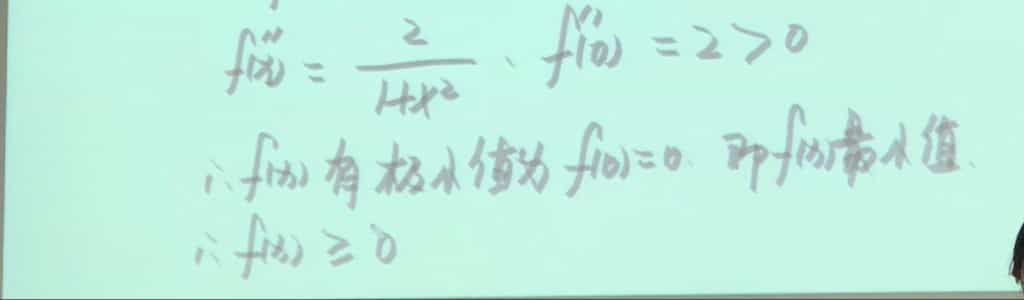 f''(x) = 2/(1+x²)、f''(0) = 2 > 0
∴ f(x) 有极小值为 f(0)=0. 即f(x)最小值.
∴ f(x) ≥ 0